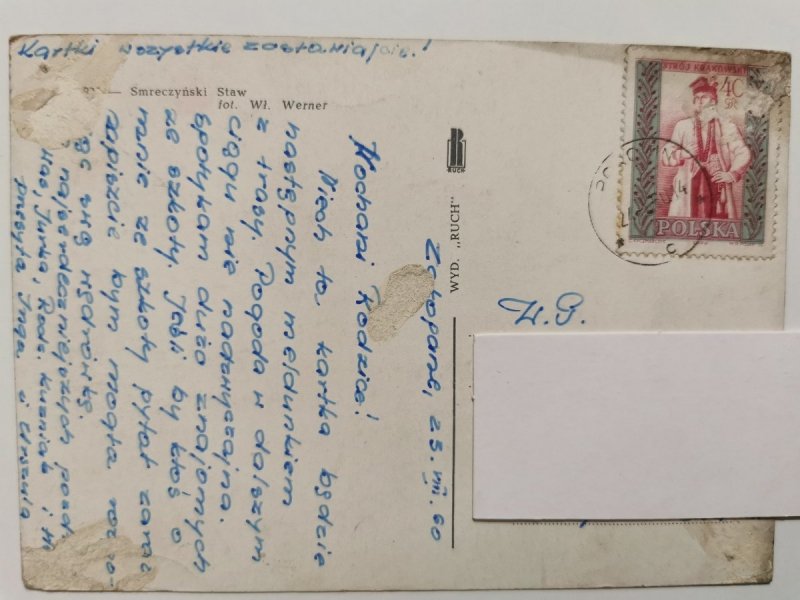 Kartki wszystkie zostawiajcie!
Smreczyński Staw
fot. Wł. Werner
Zakopane, 25.VIII.60
Kochani Rodzice!
Niech ta kartka będzie
następnym meldunkiem
z trasy. Pogoda w dalszym
ciągu nie nadzwyczajna.
Spotykam dużo znajomych
ze szkoły. Jeśli by ktoś o
mnie ze szkoły pytał zaraz
zapiszcie bym mogła
swą wędrówkę.
najserdeczniejszych
Was, Jurka,
przesyła Inga i Urszula
WYD. „RUCH"
RUCH
STRÓJ KRAKOWSKI
40
GR
POLSKA
C
W.P.